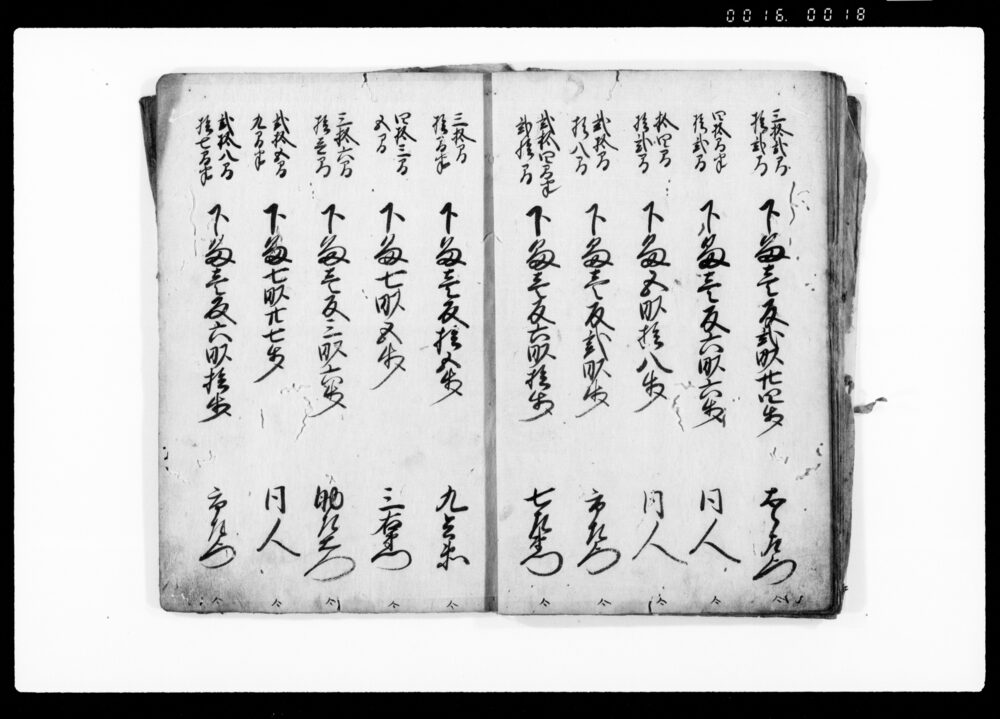 0016. 0018
三拾弐間
拾弐間
下畠壱反弐畝廿四歩
四拾間半
拾弐間
下畠壱反六畝六歩 同人
拾四間
拾弐間
下畠五畝拾八歩 同人
弐拾間
拾八間
下畠壱反弐畝歩 市左衛門
弐拾四間半
弐拾間
下畠壱反六畝拾歩
三拾間
拾間半
下畠壱反拾五歩 九兵衛
四拾三間
五間
下畠七畝五歩 三右衛門
三拾六間
拾壱間
下畠壱反三畝六歩
弐拾五間
九間半
下畠七畝廿七歩 同人
弐拾八間
拾七間半
下畠壱反六畝拾歩 市左衛門